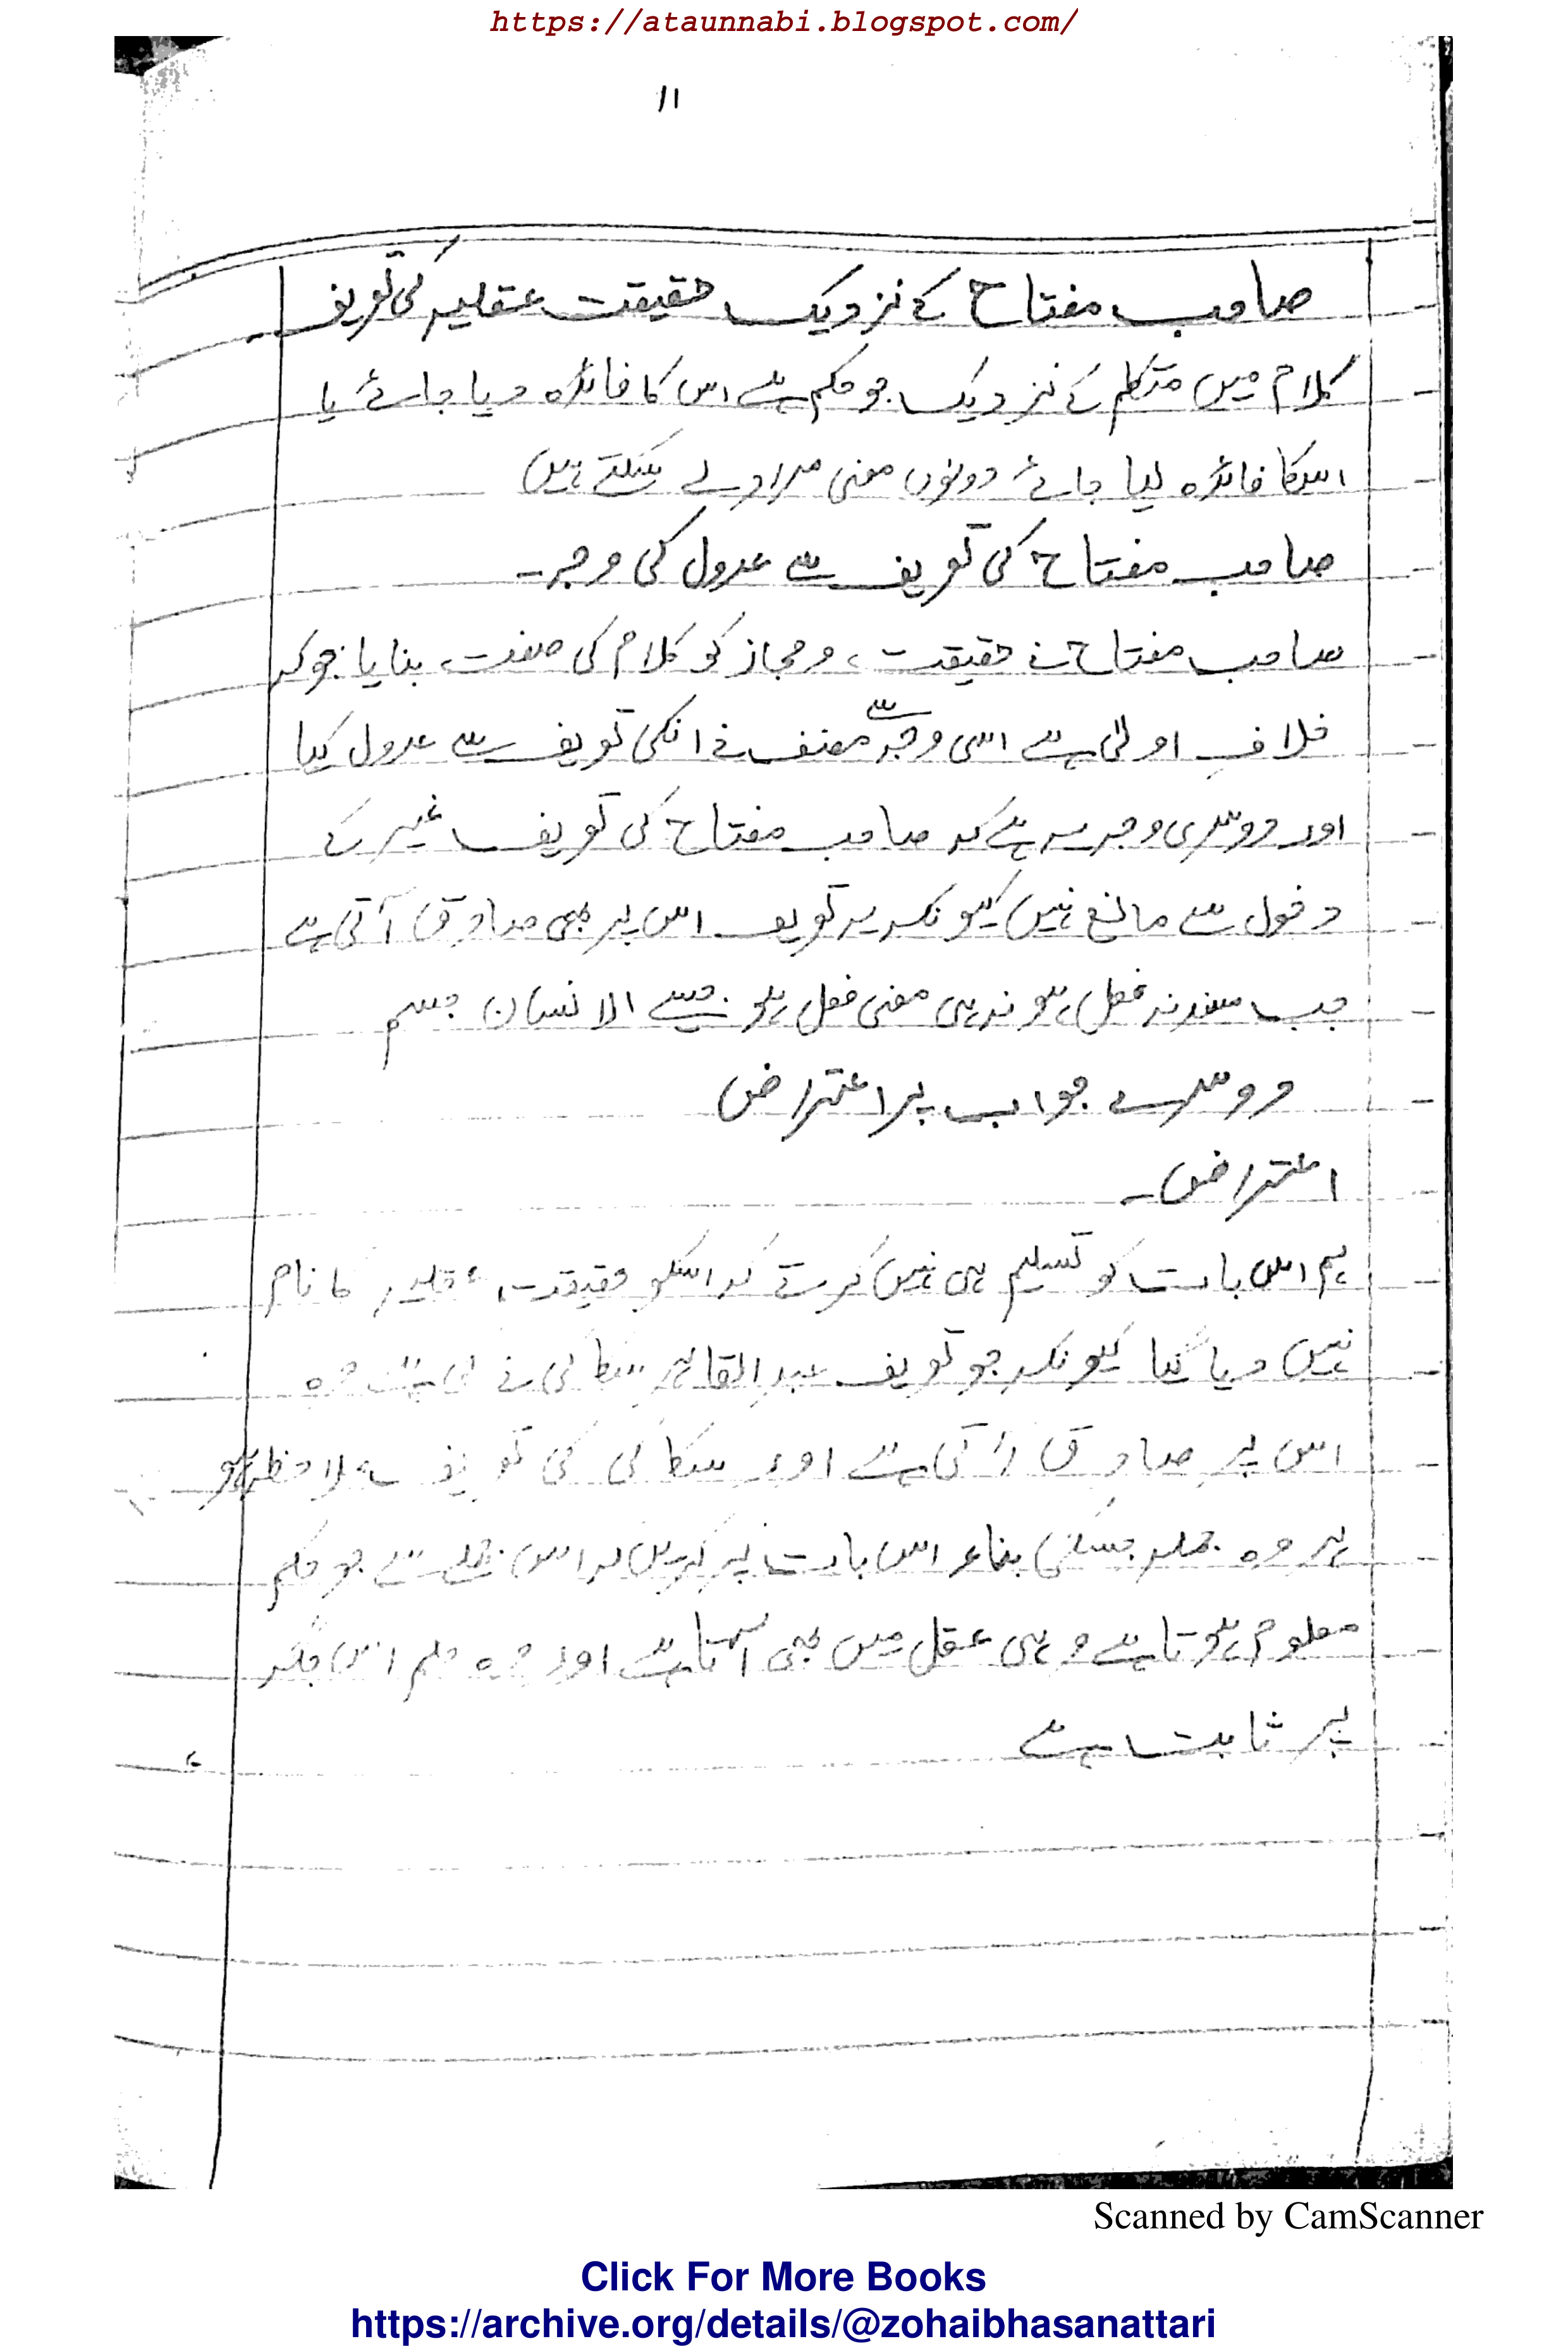 https://ataunnabi.blogspot.com/
۱۱
صاحب مفتاح کے نزدیک حقیقت عقلیہ کی تعریف
کلام میں متکلم کے نزدیک جو حکم ہے اس کا فائدہ دیا جائے یا
اسکا فائدہ لیا جائے دونوں معنی مراد لے سکتے ہیں
صاحب مفتاح کی تعریف سے عدول کی وجہ۔
صاحب مفتاح نے حقیقت و مجاز کو کلام کی صفت بنایا جو کہ
خلاف اولٰی ہے اسی وجہ سے مصنف نے انکی تعریف سے عدول کیا
اور دوسری وجہ یہ ہے کہ صاحب مفتاح کی تعریف غیر کے
دخول سے مانع نہیں کیونکہ یہ تعریف اس پر بھی صادق آتی ہے
جب مسند نہ فعل ہو نہ ہی معنی فعل ہو جیسے الانسان جسم
دوسرے جواب پر اعتراض
اعتراض۔
ہم اس بات کو تسلیم ہی نہیں کرتے کہ اسکو حقیقت عقلیہ کا نام
نہیں دیا گیا کیونکہ جو تعریف عبد القاہر سکاکی نے کی ہے وہ
اس پر صادق آتی ہے اور سکاکی کی تعریف ملاحظہ ہو
ہر وہ جملہ جسکی بناء اس بات پر کریں کہ اس جملے سے جو حکم
معلوم ہوتا ہے وہی عقل میں بھی آتا ہے اور وہ حکم اس جگہ
پر ثابت ہے
Scanned by CamScanner
Click For More Books
https://archive.org/details/@zohaibhasanattari